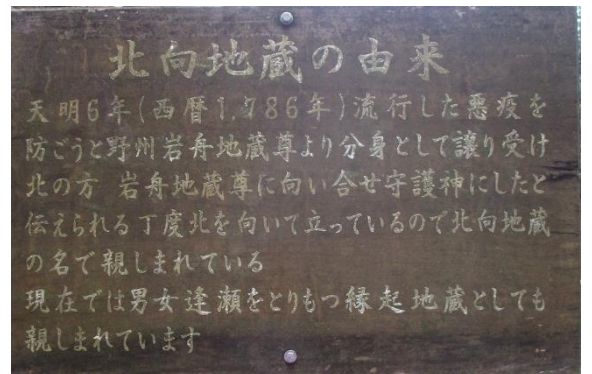 北向地蔵の由来
天明6年(西暦1,786年)流行した悪疫を
防ごうと野州岩舟地蔵尊より分身として譲り受け
北の方 岩舟地蔵尊に向い合せ守護神にしたと
伝えられる丁度北を向いて立っているので北向地蔵
の名で親しまれている
現在では男女逢瀬をとりもつ縁起地蔵としても
親しまれています